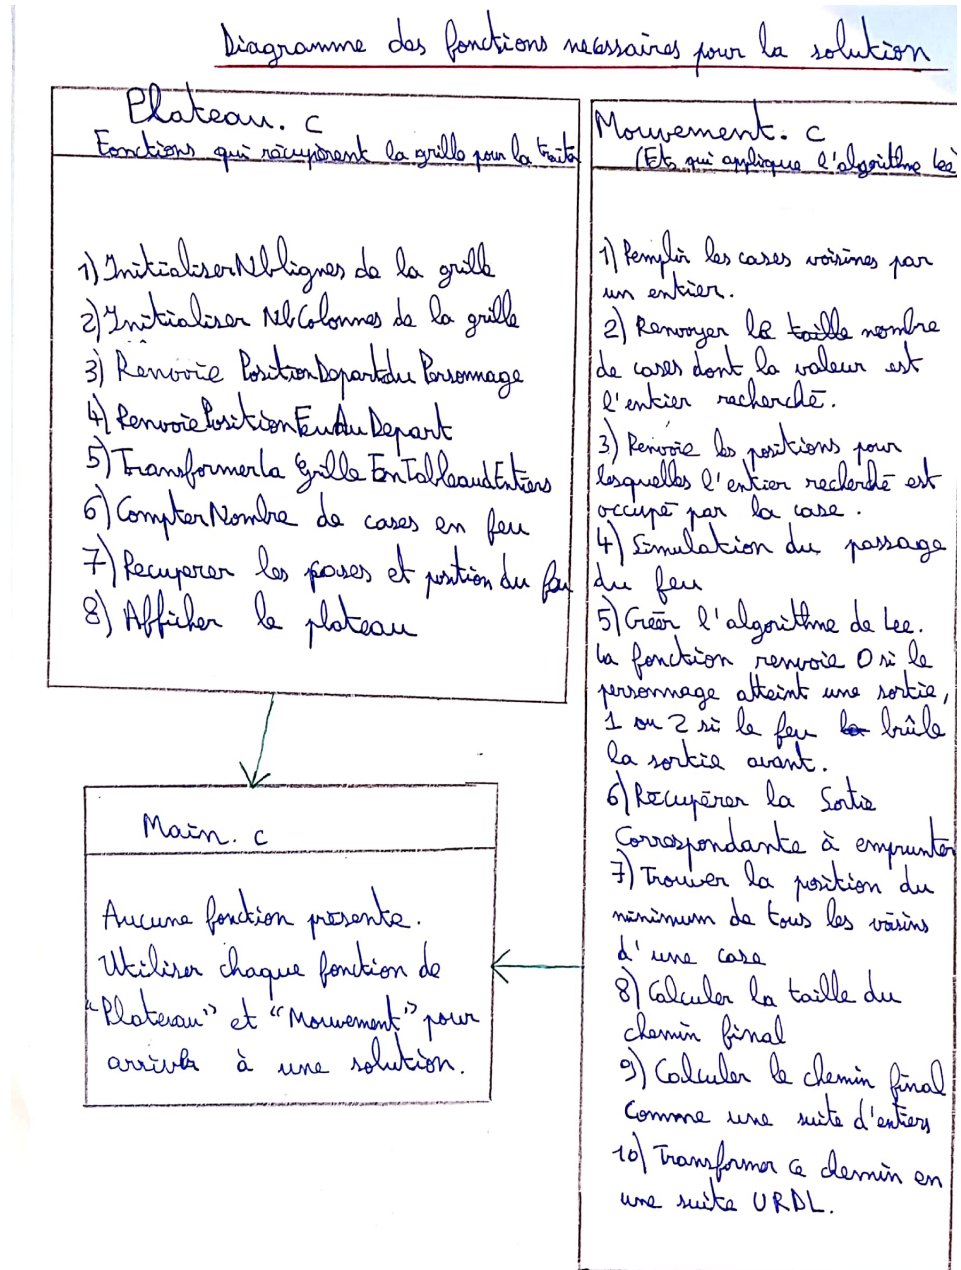 Diagramme des fonctions necessaires pour la solution
Plateau. c
Fonctions qui récupèrent la grille pour la traiter
1) InitialiserNblignes de la grille
2) Initialiser NbColonnes de la grille
3) Renvoie PositionDepartdu Personnage
4) RenvoiePositionFeuAuDepart
5) Transformerla Grille EnTableaudEntiers
6) CompterNombre de cases en feu
7) Recuperer les poses et position du feu
8) Afficher le plateau
Main. c
Aucune fonction présente.
Utiliser chaque fonction de
"Plateau" et "Mouvement" pour
arriver à une solution.
Mouvement. c
(Ets qui applique l'algorithme Lee)
1) Remplir les cases voisines par
un entier.
2) Renvoyer le taille nombre
de cases dont la valeur est
l'entier recherché.
3) Renvoie les positions pour
lesquelles l'entier recherché est
occupé par la case.
4) Simulation du passage
du feu
5) Créer l'algorithme de Lee.
La fonction renvoie 0 si le
personnage atteint une sortie,
1 ou 2 si le feu brûle
la sortie avant.
6) Récupérer la Sortie
Correspondante à emprunter
7) Trouver la position du
minimum de tous les voisins
d'une case
8) Calculer la taille du
chemin final
9) Calculer le chemin final
Comme une suite d'entiers
10) Transformer ce chemin en
une suite URDL.